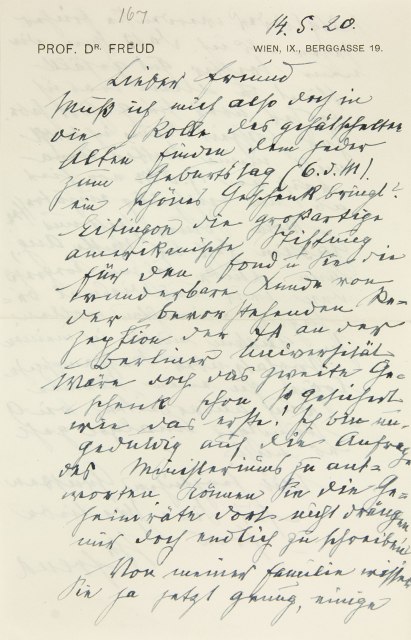 167
14. 5. 20.
PROF. DR. FREUD
WIEN, IX., BERGGASSE 19.
Lieber Freund
Muß ich mich also doch in
die Rolle des gefälschelten
Alten finden dem jeder
zum Geburtstag (6. d. M)
ein schönes Geschenk bringt?
Eitingon die großartige
amerikanische Stiftung
für den Fond u Sie die
wunderbare Kunde von
der bevorstehenden Re-
zeption der ΨA an der
Berliner Universität
Wäre doch das zweite Ge-
schenk schon so gesichert
wie das erste! Ich bin un-
geduldig auf die Anfrage
des Ministeriums zu ant-
worten. Können Sie die Ge-
heimräte dort nicht drängen
mir doch endlich zu schreiben
Von meiner Familie wissen
Sie ja jetzt genug, einige